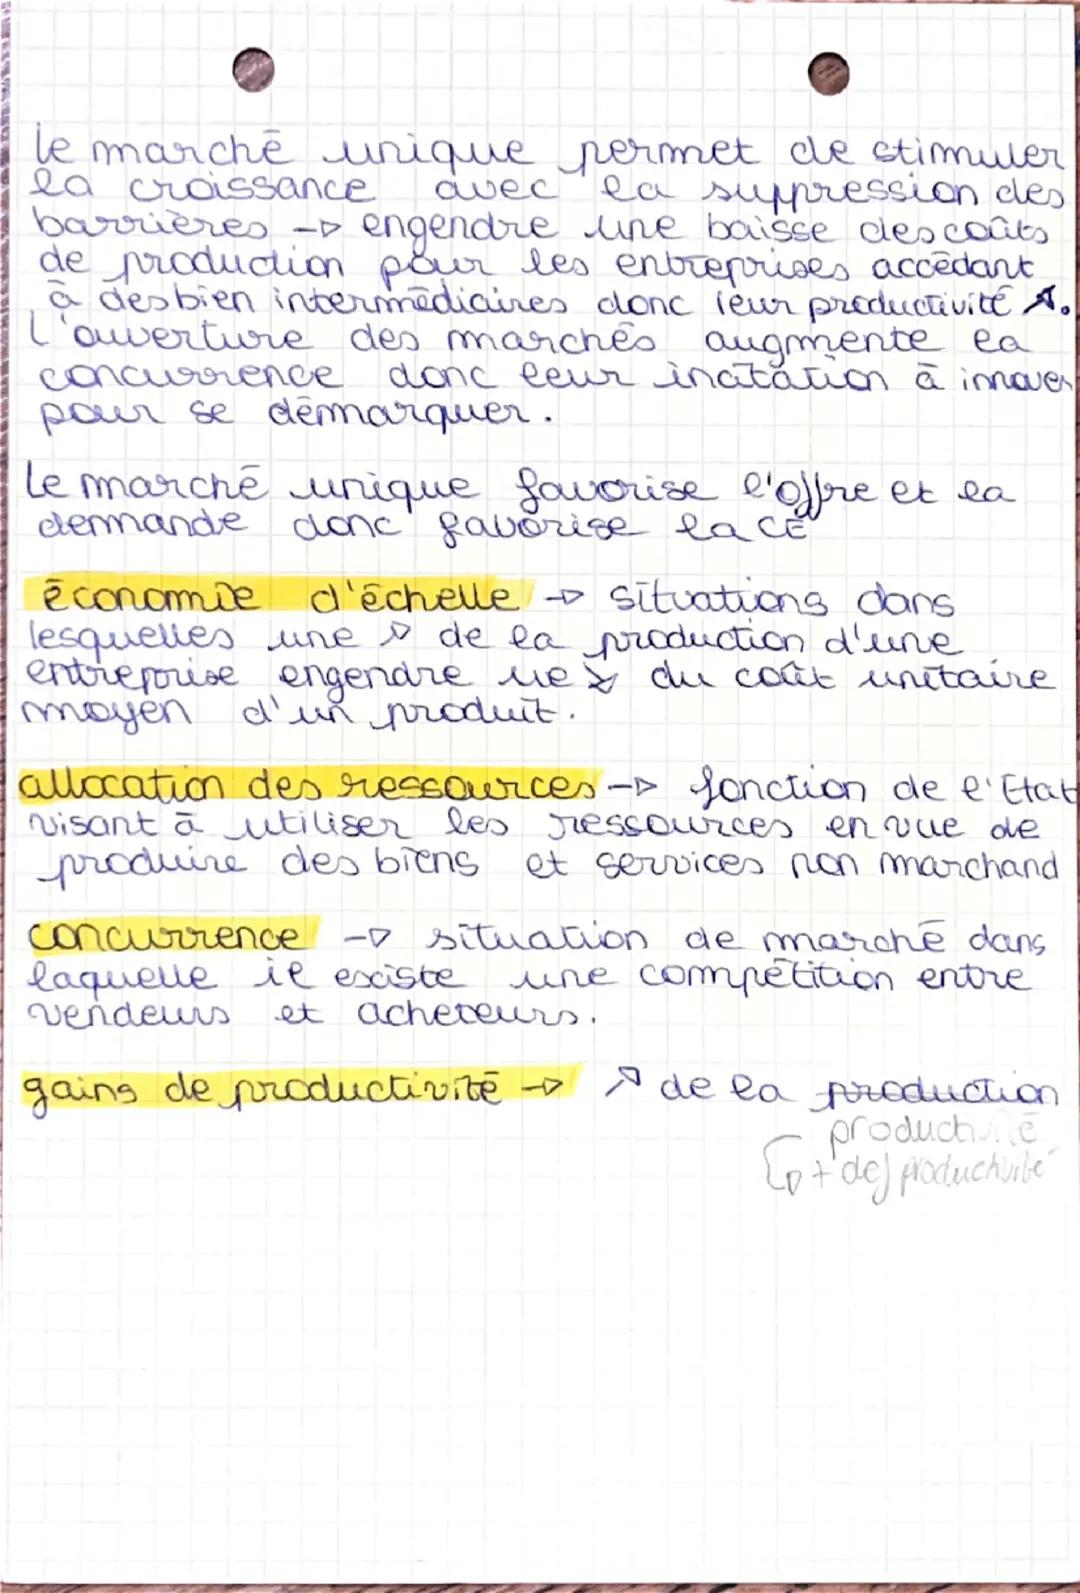 le marché unique permet de stimuler
la croissance avec la suppression des
barrières → engendre une baisse des coûts
de production pour les entreprises accédant
à des bien intermédiaires donc leur productivité ↗.
L'ouverture des marchés augmente la
concurrence donc leur incitation à innover
pour se démarquer.
Le marché unique favorise l'offre et la
demande donc favorise la CE
économie d'échelle → situations dans
lesquelles une ↗ de la production d'une
entreprise engendre ue ↘ du coût unitaire
moyen d'un produit.
allocation des ressources → fonction de l'Etat
visant à utiliser les ressources en vue de
produire des biens et services non marchand
concurrence → situation de marché dans
laquelle il existe une compétition entre
vendeurs et acheteurs.
gains de productivité → ↗ de la production
productivité
↳ + de productivité